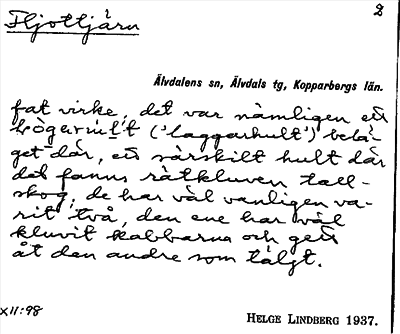 Fljottjärn
2
Älvdalens sn, Älvdals tg, Kopparbergs län.
fat virke, det var nämligen ett
('laggarhult') belä-
get där, ett särskilt hult där
det fanns rätkluven tall-
skog; de har väl vanligen va-
rit två, den ene har väl
kluvit kabbarna och gett
åt den andre som täljt.
XII:98
HELGE LINDBERG 1937.